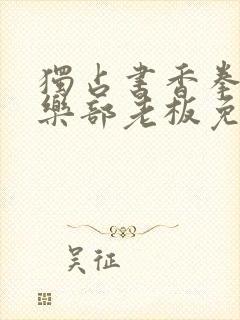 獨占書香拳
樂部老板免
吴征